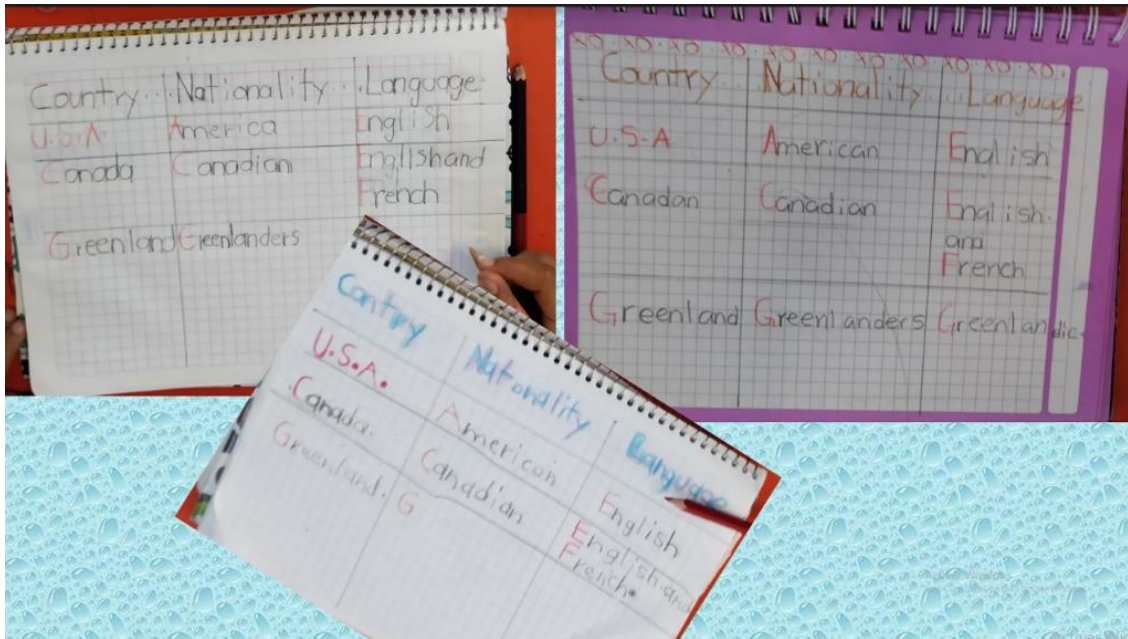 Country Nationality Language
U.S.A. America English
Canada Canadian English and
French
Greenland Greenlanders
XO XO XO XO XO XO XO XO XO XO XO
Country Nationality Language
U.S.A American English
Canadan Canadian English
and
French
Greenland Greenlanders Greenlandic.
Contry Nationality Language
U.S.A. American English
Canada. Canadian English and
French.
Greenland. G